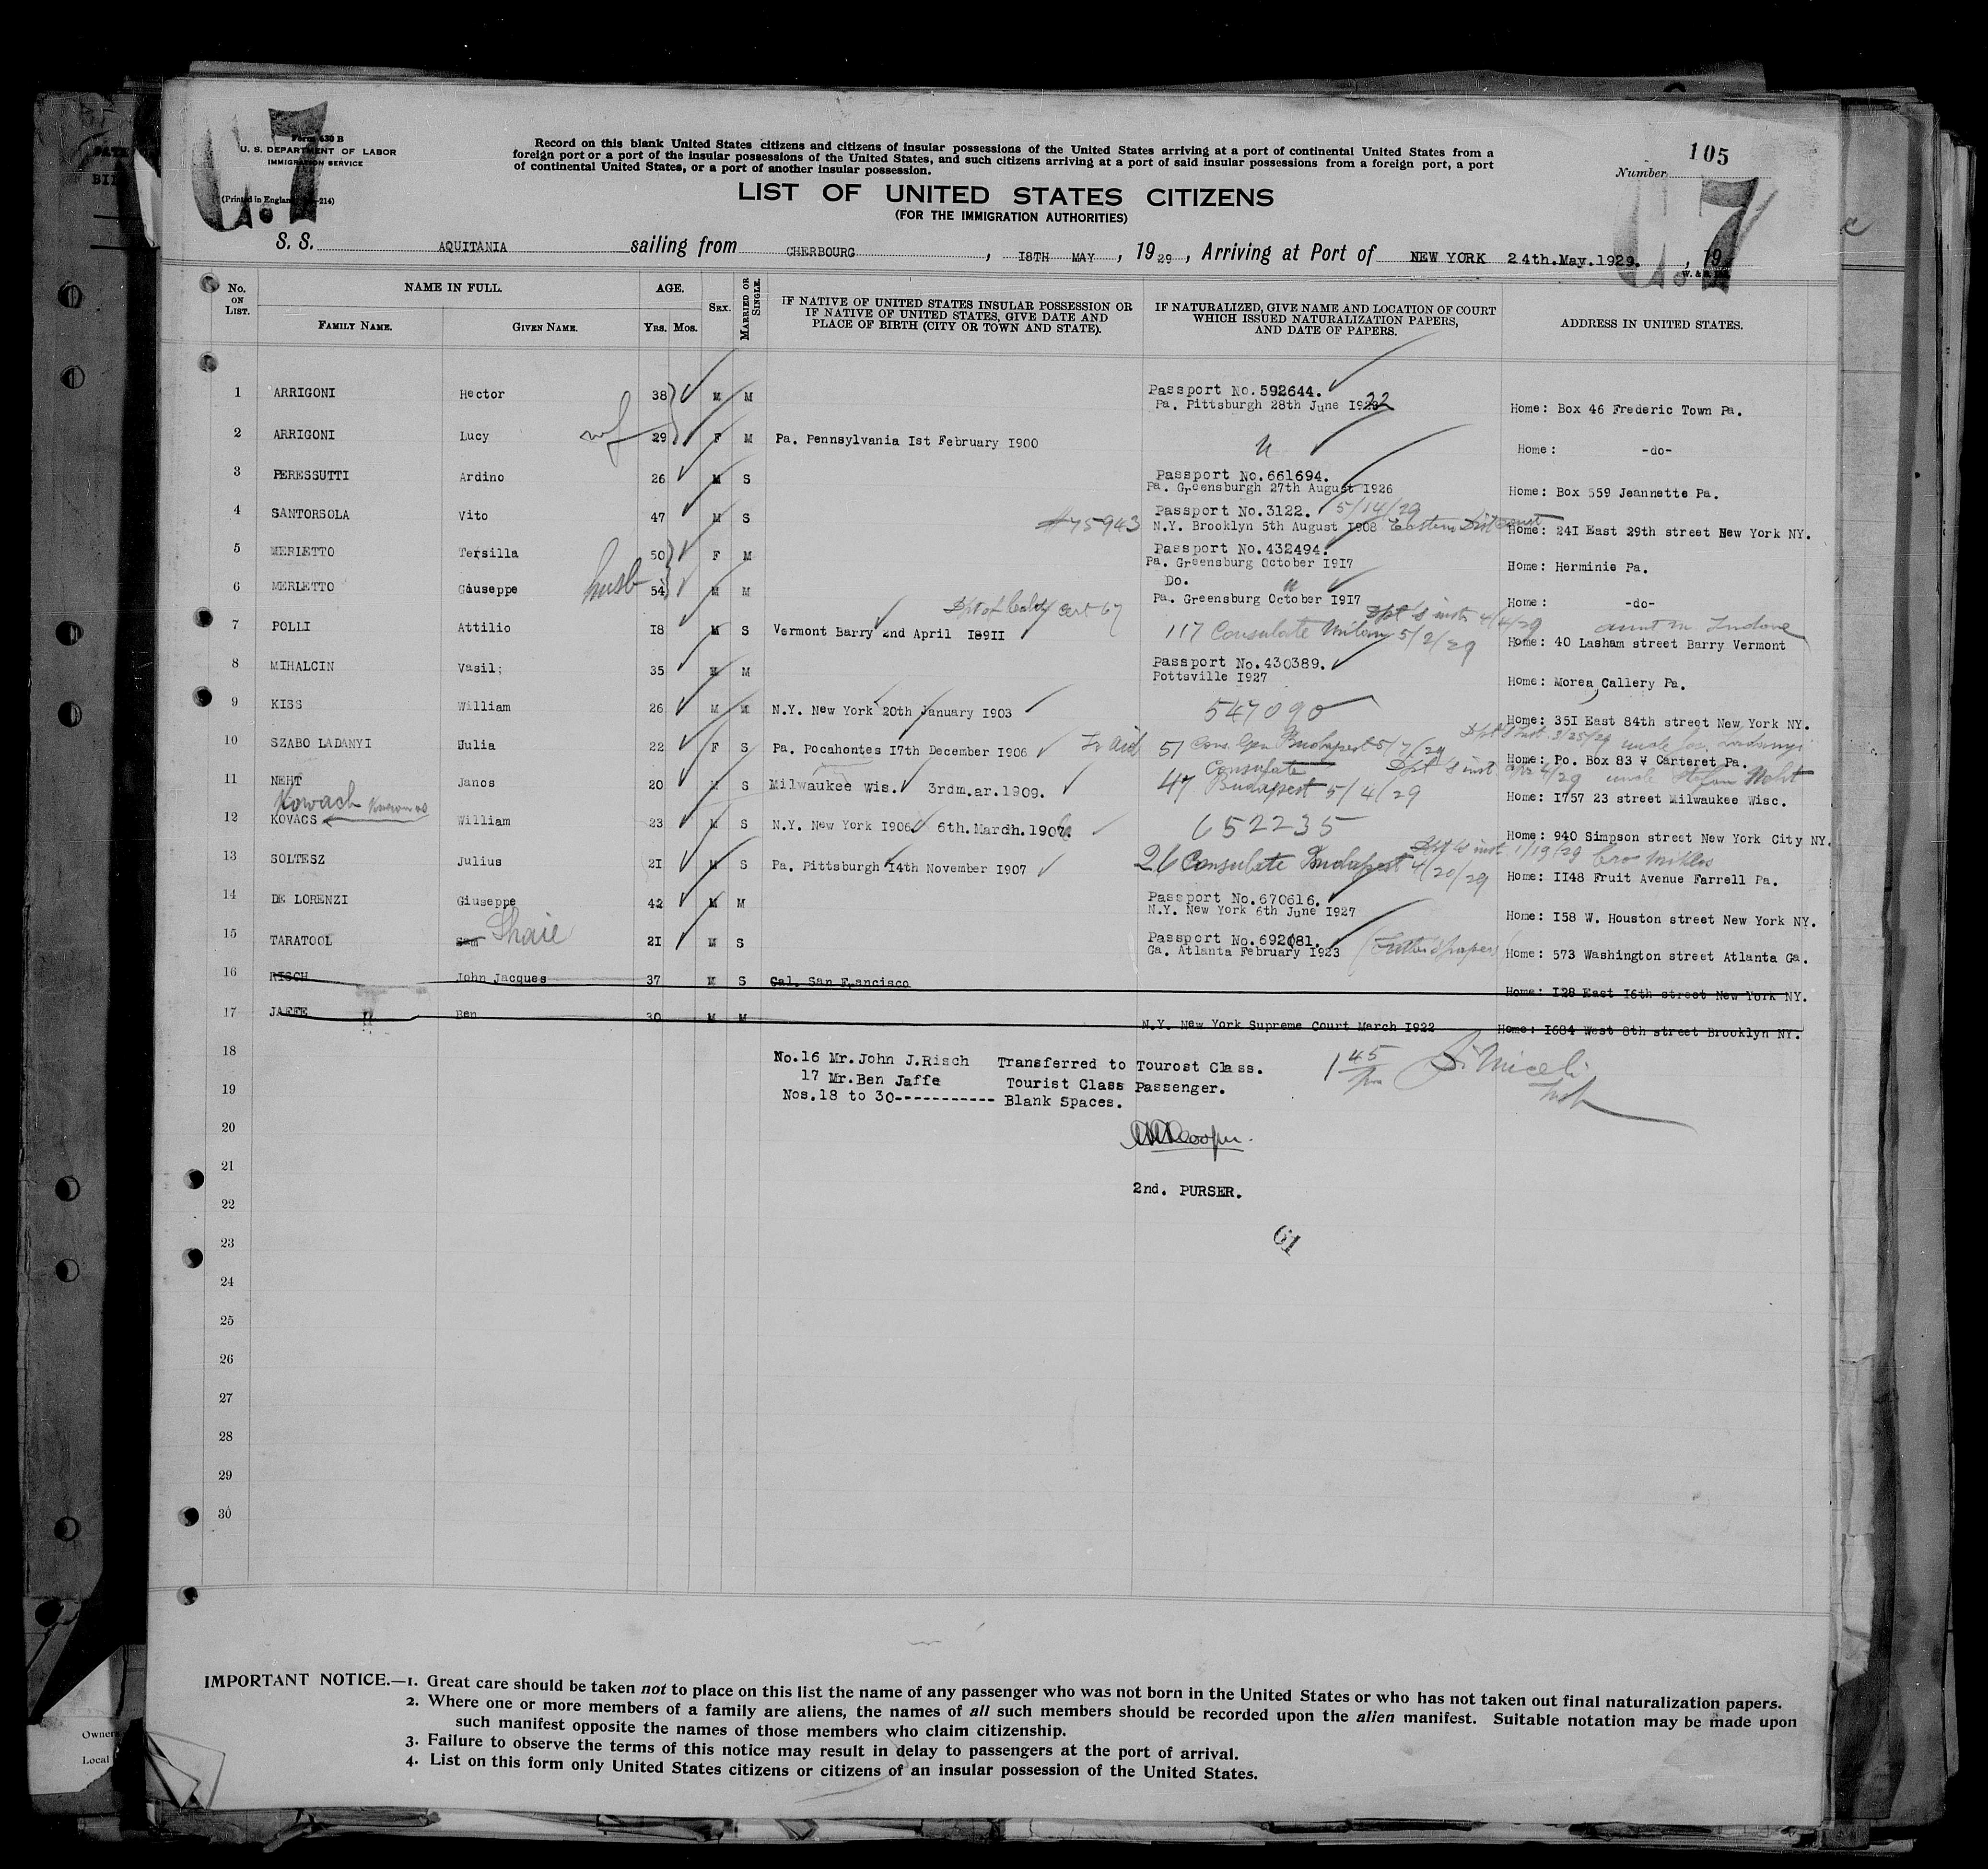 Form 630 B
U. S. DEPARTMENT OF LABOR
IMMIGRATION SERVICE
Record on this blank United States citizens and citizens of insular possessions of the United States arriving at a port of continental United States from a
foreign port or a port of the insular possessions of the United States, and such citizens arriving at a port of said insular possessions from a foreign port, a port
of continental United States, or a port of another insular possession.
LIST OF UNITED STATES CITIZENS
(FOR THE IMMIGRATION AUTHORITIES)
Number 105
7
7
S. S. AQUITANIA sailing from CHERBOURG, I8TH MAY, 1929, Arriving at Port of NEW YORK 24th.May.1929., 19
No. ON LIST.
NAME IN FULL.
FAMILY NAME. GIVEN NAME.
AGE.
YRS. MOS.
SEX.
MARRIED OR SINGLE.
IF NATIVE OF UNITED STATES INSULAR POSSESSION OR
IF NATIVE OF UNITED STATES, GIVE DATE AND
PLACE OF BIRTH (CITY OR TOWN AND STATE).
IF NATURALIZED, GIVE NAME AND LOCATION OF COURT
WHICH ISSUED NATURALIZATION PAPERS,
AND DATE OF PAPERS.
ADDRESS IN UNITED STATES.
1 ARRIGONI Hector 38 M M Passport No.592644.
Pa. Pittsburgh 28th June I922 Home: Box 46 Frederic Town Pa.
2 ARRIGONI Lucy wf 29 F M Pa. Pennsylvania Ist February I900 Home: -do-
3 PERESSUTTI Ardino 26 M S Passport No.661694.
Pa. Greensburgh 27th August I926 Home: Box 559 Jeannette Pa.
4 SANTORSOLA Vito 47 M S #75943 Passport No.3122. 5/14/29
N.Y. Brooklyn 5th August I908 Eastern Dist Court Home: 24I East 29th street New York NY.
5 MERLETTO Tersilla 50 F M Passport No.432494.
Pa. Greensburg October I9I7 Home: Herminie Pa.
6 MERLETTO Giuseppe husb 54 M M Do.
Pa. Greensburg October I9I7 Home: -do-
7 POLLI Attilio I8 M S Vermont Barry 2nd April I89II 117 Consulate Milan 5/2/29 Dpt's inst 4/4/29
Home: 40 Lasham street Barry Vermont
8 MIHALCIN Vasil; 35 M M Passport No.430389.
Pottsville I927 Home: Morea, Callery Pa.
9 KISS William 26 M M N.Y. New York 20th January I903 547090 Home: 35I East 84th street New York NY.
10 SZABO LADANYI Julia 22 F S Pa. Pocahontes I7th December I906 51 Cons. Gen Budapest 5/7/29 Dpt's inst 3/25/29 uncle Jos. Ladanyi
Home: Po. Box 83 Carteret Pa.
11 NEHT Janos 20 M S Milwaukee wis. 3rdm.ar.1909. 47 Consulate Budapest 5/4/29
Home: I757 23 street Milwaukee Wisc.
Kowach Known as
12 KOVACS William 23 M S N.Y. New York I906 6th.Mardh.1906 652235 Home: 940 Simpson street New York City NY.
13 SOLTESZ Julius 2I M S Pa. Pittsburgh I4th November I907 26 Consulate Budapest 4/20/29 Dpt's inst 1/19/29 bro Miklos
Home: II48 Fruit Avenue Farrell Pa.
14 DE LORENZI Giuseppe 42 M M Passport No.670616.
N.Y. New York 6th June I927 Home: I58 W. Houston street New York NY.
15 TARATOOL Sam Shaie 2I M S Passport No.692081.
Ga. Atlanta February I923 (Father's papers) Home: 573 Washington street Atlanta Ga.
16 RISCH John Jacques 37 M S Cal. San Francisco Home: I28 East I6th street New York NY.
17 JAFFE Ben 30 M M N.Y. New York Supreme Court March I922 Home: I684 West 8th street Brooklyn NY.
18
No.16 Mr.John J.Risch Transferred to Tourost Class.
17 Mr.Ben Jaffe Tourist Class Passenger.
19
Nos.18 to 30----------- Blank Spaces.
1 45/pm
20
21
2nd. PURSER.
22
61
23
24
25
26
27
28
29
30
IMPORTANT NOTICE.—1. Great care should be taken not to place on this list the name of any passenger who was not born in the United States or who has not taken out final naturalization papers.
2. Where one or more members of a family are aliens, the names of all such members should be recorded upon the alien manifest. Suitable notation may be made upon
such manifest opposite the names of those members who claim citizenship.
3. Failure to observe the terms of this notice may result in delay to passengers at the port of arrival.
4. List on this form only United States citizens or citizens of an insular possession of the United States.
Owner
Local